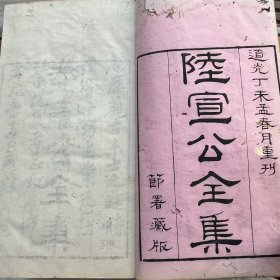 道光丁未孟春月重刊
陸宣公全集
節署藏版